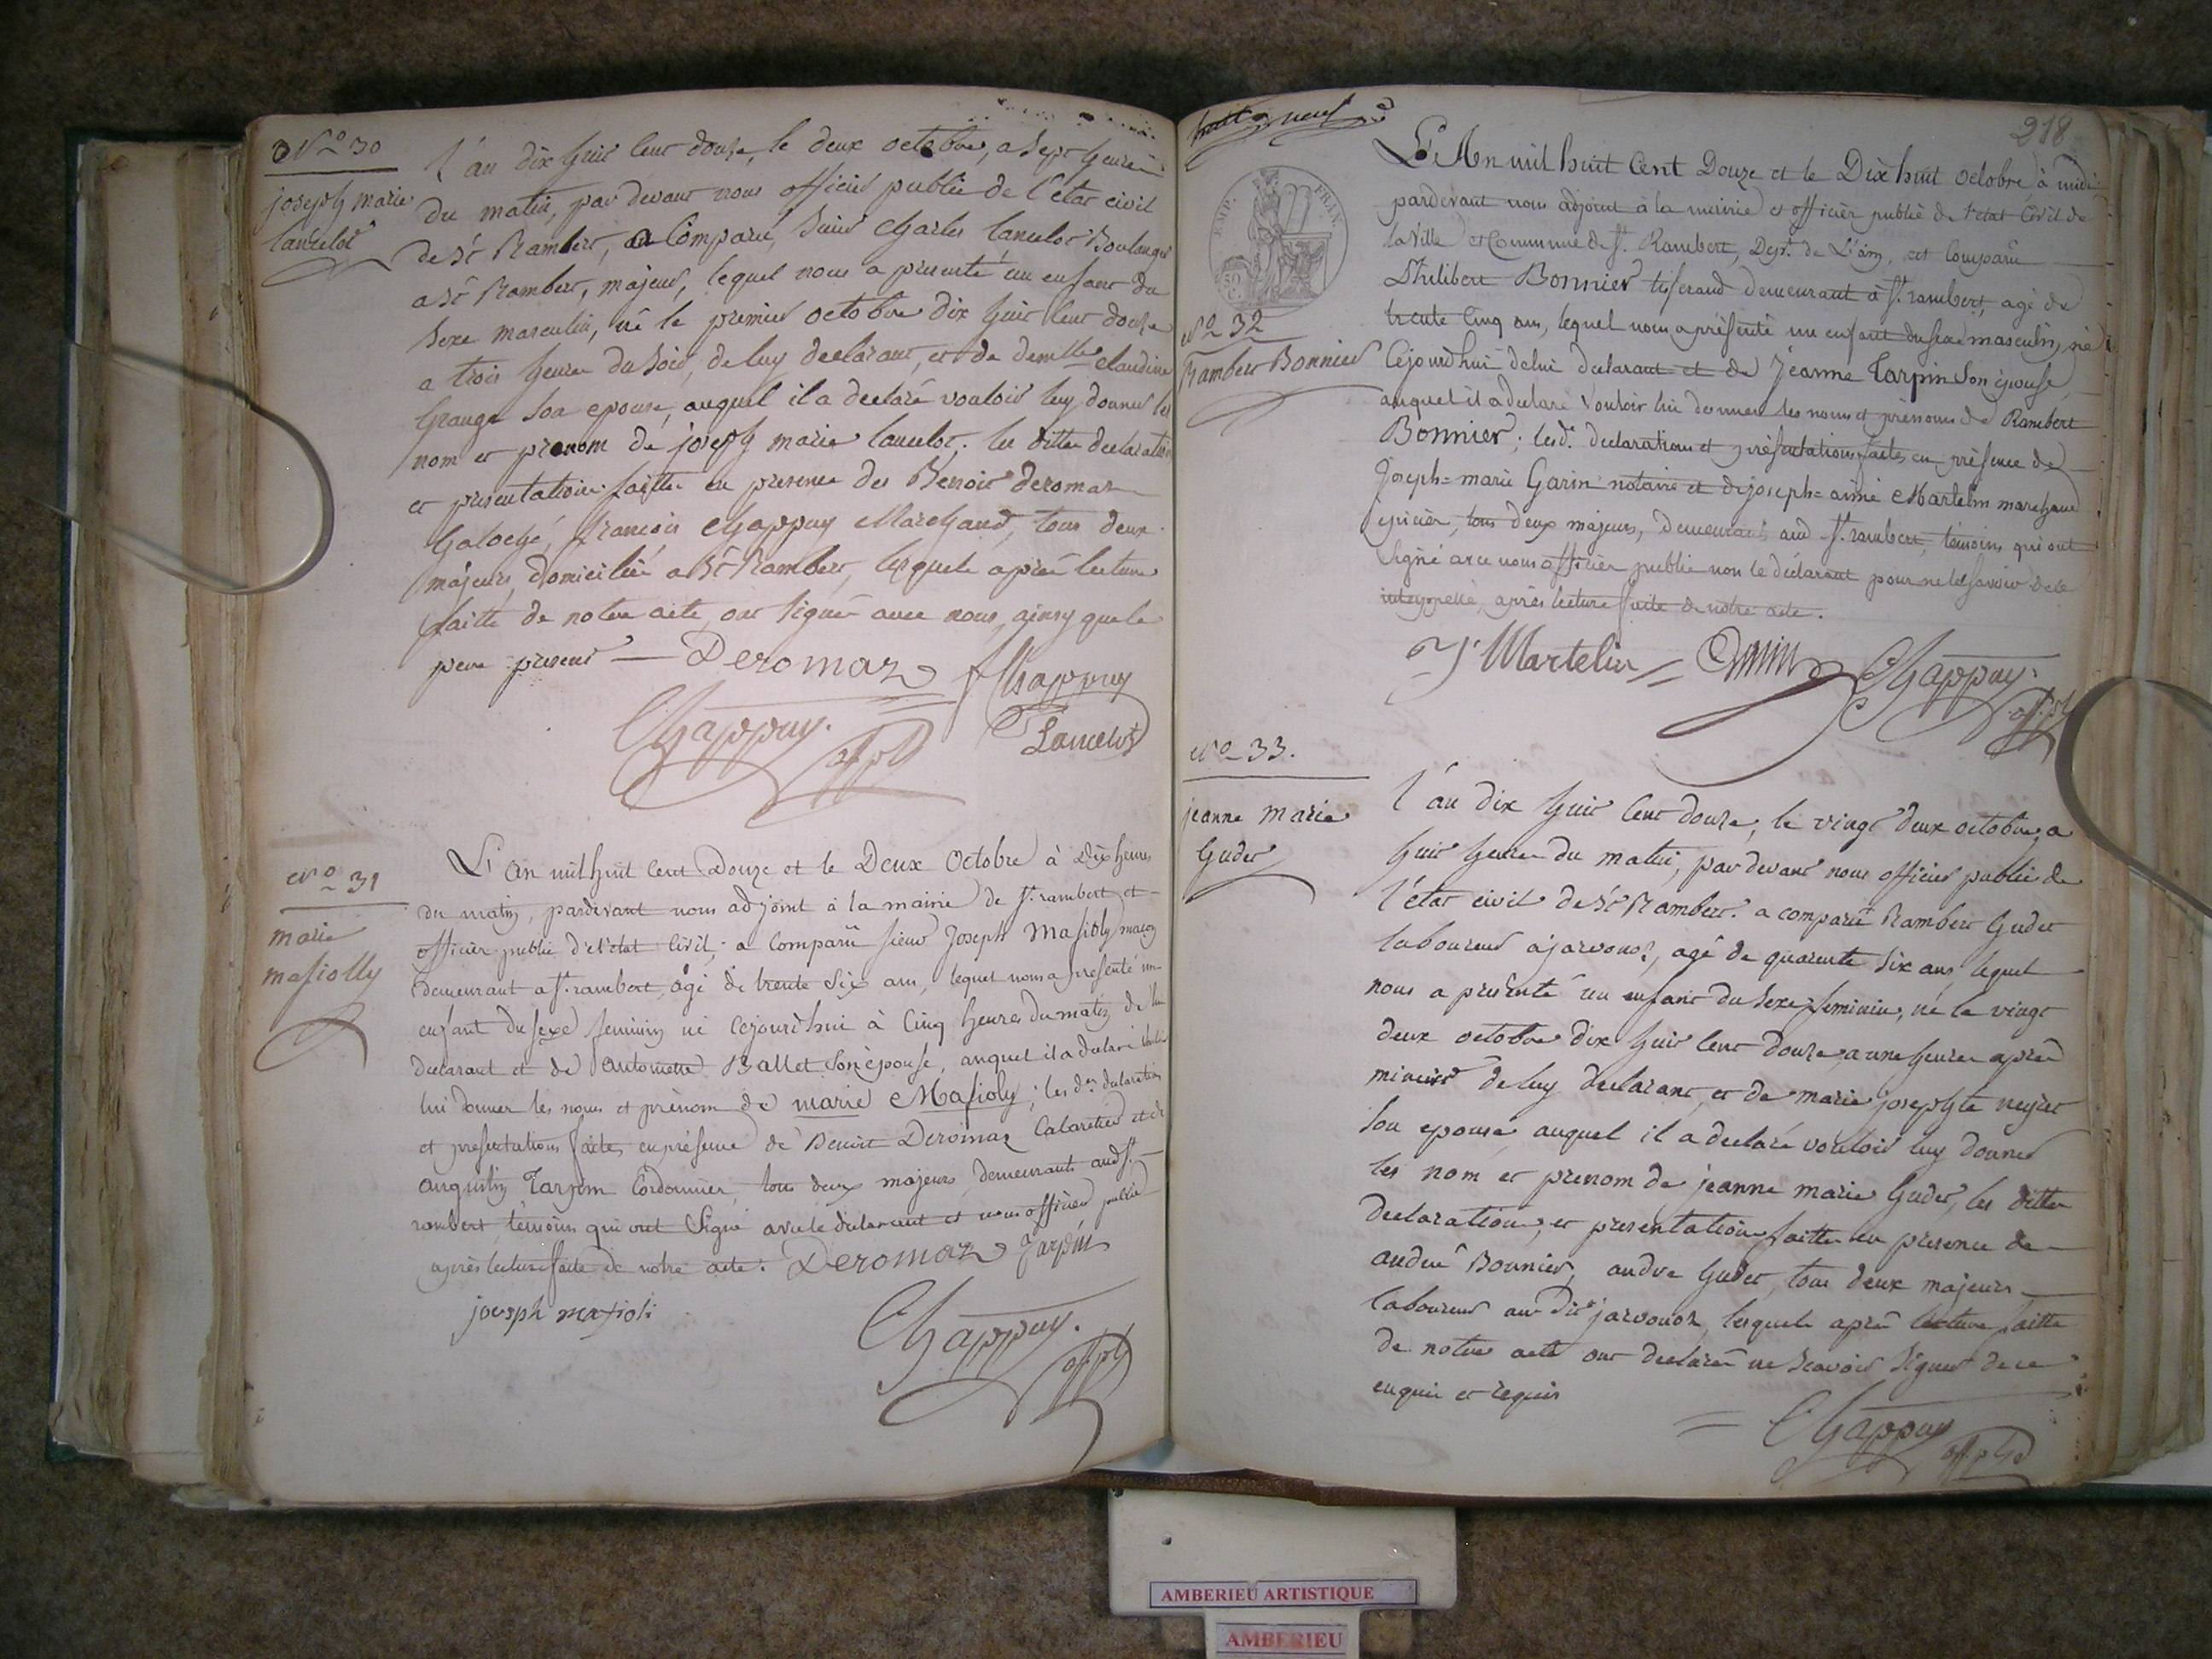 N.o 30
joseph marie
lancelot
l'an dix huit cent douze, le deux octobre, a sept heures
du matin, par devant nous officier public de l'état civil
de St Rambert, a Comparu, Sieur Charles lancelot Boulanger
a St Rambert, majeur, lequel nous a presenté un enfant du
Sexe masculin, né le premier octobre dix huit cent douze
a trois heures du soir, de luy declarant, et de demlle claudine
Grange son epouse, auquel il a declaré vouloir luy donner les
nom et prenom de joseph marie lancelot. les dittes declaration
et presentation faittes en presence des Benoit deromaz
françois Chappuy Marchand, tous deux
majeurs, domiciliés a St Rambert, lesquels après lecture
faitte de notre acte, ont signés avec nous, ainsy que le
pere present — Deromaz fChappuy
Chappuy. off pb
Lancelot
N.o 31
marie
masiolly
L'an mil huit cent Douze et le Deux Octobre à Dix heures
du matin, pardevant nous adjoint à la mairie de St. rambert et
officier public d'el'état Civil, a Comparu sieur Joseph Masiolly maçon
demeurant a St. rambert, agé de trente six ans, lequel nous a presenté un
enfant du sexe feminin né Cejourd'hui à Cinq heures du matin de lui
declarant et de antoinette Ballet son épouse, auquel il a declaré vouloir
lui donner les noms et prénom de marie Masioly; les des declaration
et presentations faites en présence de Benoit Deromaz Cabaretier et de
augustin Tarpin Cordonnier, tous deux majeurs, demeurants aud St.
rambert, témoins qui ont Signé avec le déclarant et nous officier public
après lecture faite de notre acte. Deromaz Tarpin
joesph masioli
Chappuy.
off pb
218
EMP. FRAN.
50 C.
N.o 32
Rambert Bonnier
L'An mil huit Cent Douze et le Dix huit Octobre à midi
pardevant nous adjoint à la mairie et officier public de l'état Civil de
la Ville et Commune de St. Rambert, Dept. de L'ain, est Comparu
Philibert Bonnier tisserand demeurant à St. rambert, agé de
trente Cinq ans, lequel nous a présenté un enfant du sexe masculin, né
Cejourd'hui de lui declarant et de Jeanne Tarpin Son épouse,
auquel il a déclaré Vouloir lui donner les noms et prénoms de Rambert
Bonnier; lesd. déclarations et présentations faites en présence de
Joseph=marie Garin notaire et de joseph=aimé Martelin marchand
epicier, tous deux majeurs, demeurants aud St. rambert, témoins qui ont
Signé avec nous officier public non le déclarant pour ne le savoir de ce
interpellé, après lecture faite de notre acte.
Martelin Garin Chappuy.
off. pb
N.o 33.
jeanne marie
Guder
l'an dix huit cent douze, le vingt deux octobre, a
huit heures du matin, par devant nous officier public de
l'état civil de St Rambert. a comparu Rambert Guder
laboureur a jarvonoz, agé de quarente six ans, lequel
nous a presenté un enfant du sexe feminin, né le vingt
deux octobre dix huit cent douze, a une heure après
minuit de luy declarant, et de marie josephte
son epouse, auquel il a declaré vouloir luy donner
les nom et prenom de jeanne marie Guder, les dittes
declaration, et presentation faittes en presence de
andré Bonnier, andre Guder, tous deux majeurs,
laboureur au dit jarvonoz, lesquels après lecture faitte
de notre acte ont declarés ne scavoir signer de ce
enquis et requis
Chappuy
off pb
AMBERIEU ARTISTIQUE
AMBERIEU